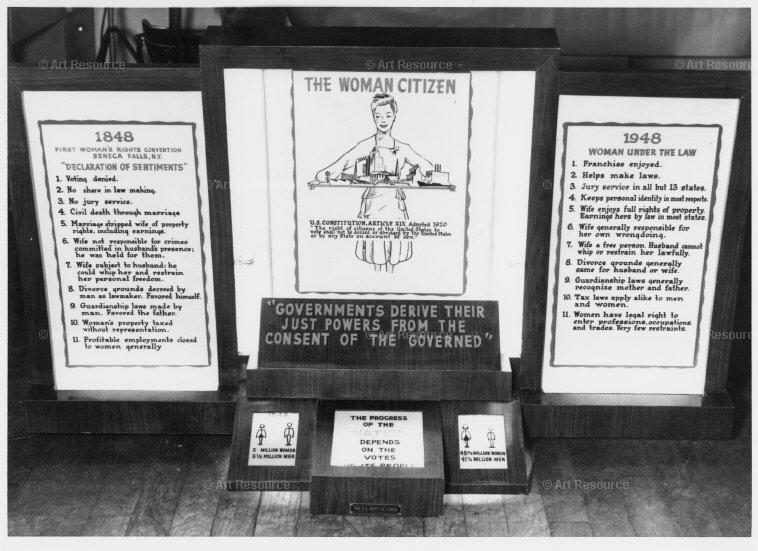 1848
FIRST WOMAN'S RIGHTS CONVENTION
SENECA FALLS, N.Y.
"DECLARATION OF SENTIMENTS"
1. Voting denied.
2. No share in law making.
3. No jury service.
4. Civil death through marriage
5. Marriage stripped wife of property
rights, including earnings.
6. Wife not responsible for crimes
committed in husbands presence;
he was held for them.
7. Wife subject to husband: he
could whip her and restrain
her personal freedom.
8. Divorce grounds decreed by
man as lawmaker. Favored himself.
9. Guardianship laws made by
man. Favored the father.
10. Woman's property taxed
without representation.
11. Profitable employments closed
to women generally
THE WOMAN CITIZEN
U.S. CONSTITUTION, ARTICLE XIX Adopted 1920
"The right of citizens of the United States to
vote shall not be denied or abridged by the United States
or by any State on account of sex."
"GOVERNMENTS DERIVE THEIR
JUST POWERS FROM THE
CONSENT OF THE GOVERNED"
1948
WOMAN UNDER THE LAW
1. Franchise enjoyed.
2. Helps make laws.
3. Jury service in all but 13 states.
4. Keeps personal identity in most respects.
5. Wife enjoys full rights of property.
Earnings hers by law in most states.
6. Wife generally responsible for
her own wrongdoing.
7. Wife a free person. Husband cannot
whip or restrain her lawfully.
8. Divorce grounds generally
same for husband or wife.
9. Guardianship laws generally
recognize mother and father.
10. Tax laws apply alike to men
and women.
11. Women have legal right to
enter professions, occupations,
and trades. Very few restraints.
1848
5 MILLION WOMEN
5½ MILLION MEN
THE PROGRESS
OF THE
NATION
DEPENDS
ON THE
VOTES
OF ITS PEOPLE
48½ MILLION WOMEN
47½ MILLION MEN
THE U.S. DEPT. OF LABOR
© Art Resource
© Art Resource
© Art Resource
© Art Resource
© Art Resource
© Art Resource
© Art Resource
© Art Resource
© Art Resource